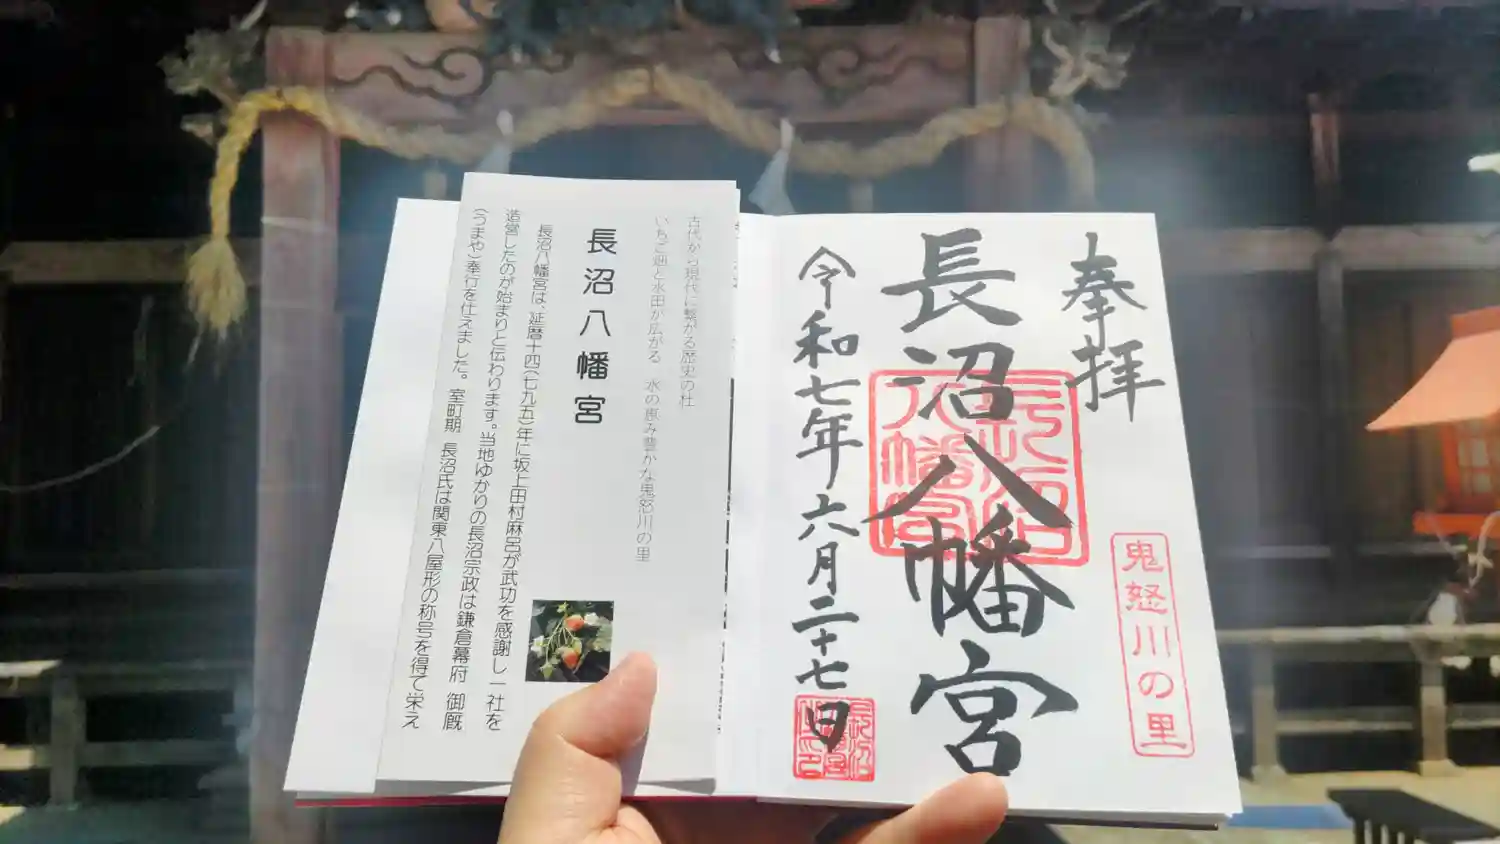 奉拝
長沼八幡宮
令和七年六月二十七日
鬼怒川の里
古代から現代に繋がる歴史の杜
いちご畑と水田が広がる 水の恵み豊かな鬼怒川の里
長沼八幡宮
長沼八幡宮は、延暦十四(七九五)年に坂上田村麻呂が武功を感謝し一社を
造営したのが始まりと伝わります。当地ゆかりの長沼宗政は鎌倉幕府 御厩
(うまや)奉行を仕えました。 室町期 長沼氏は関東八屋形の称号を得て栄え